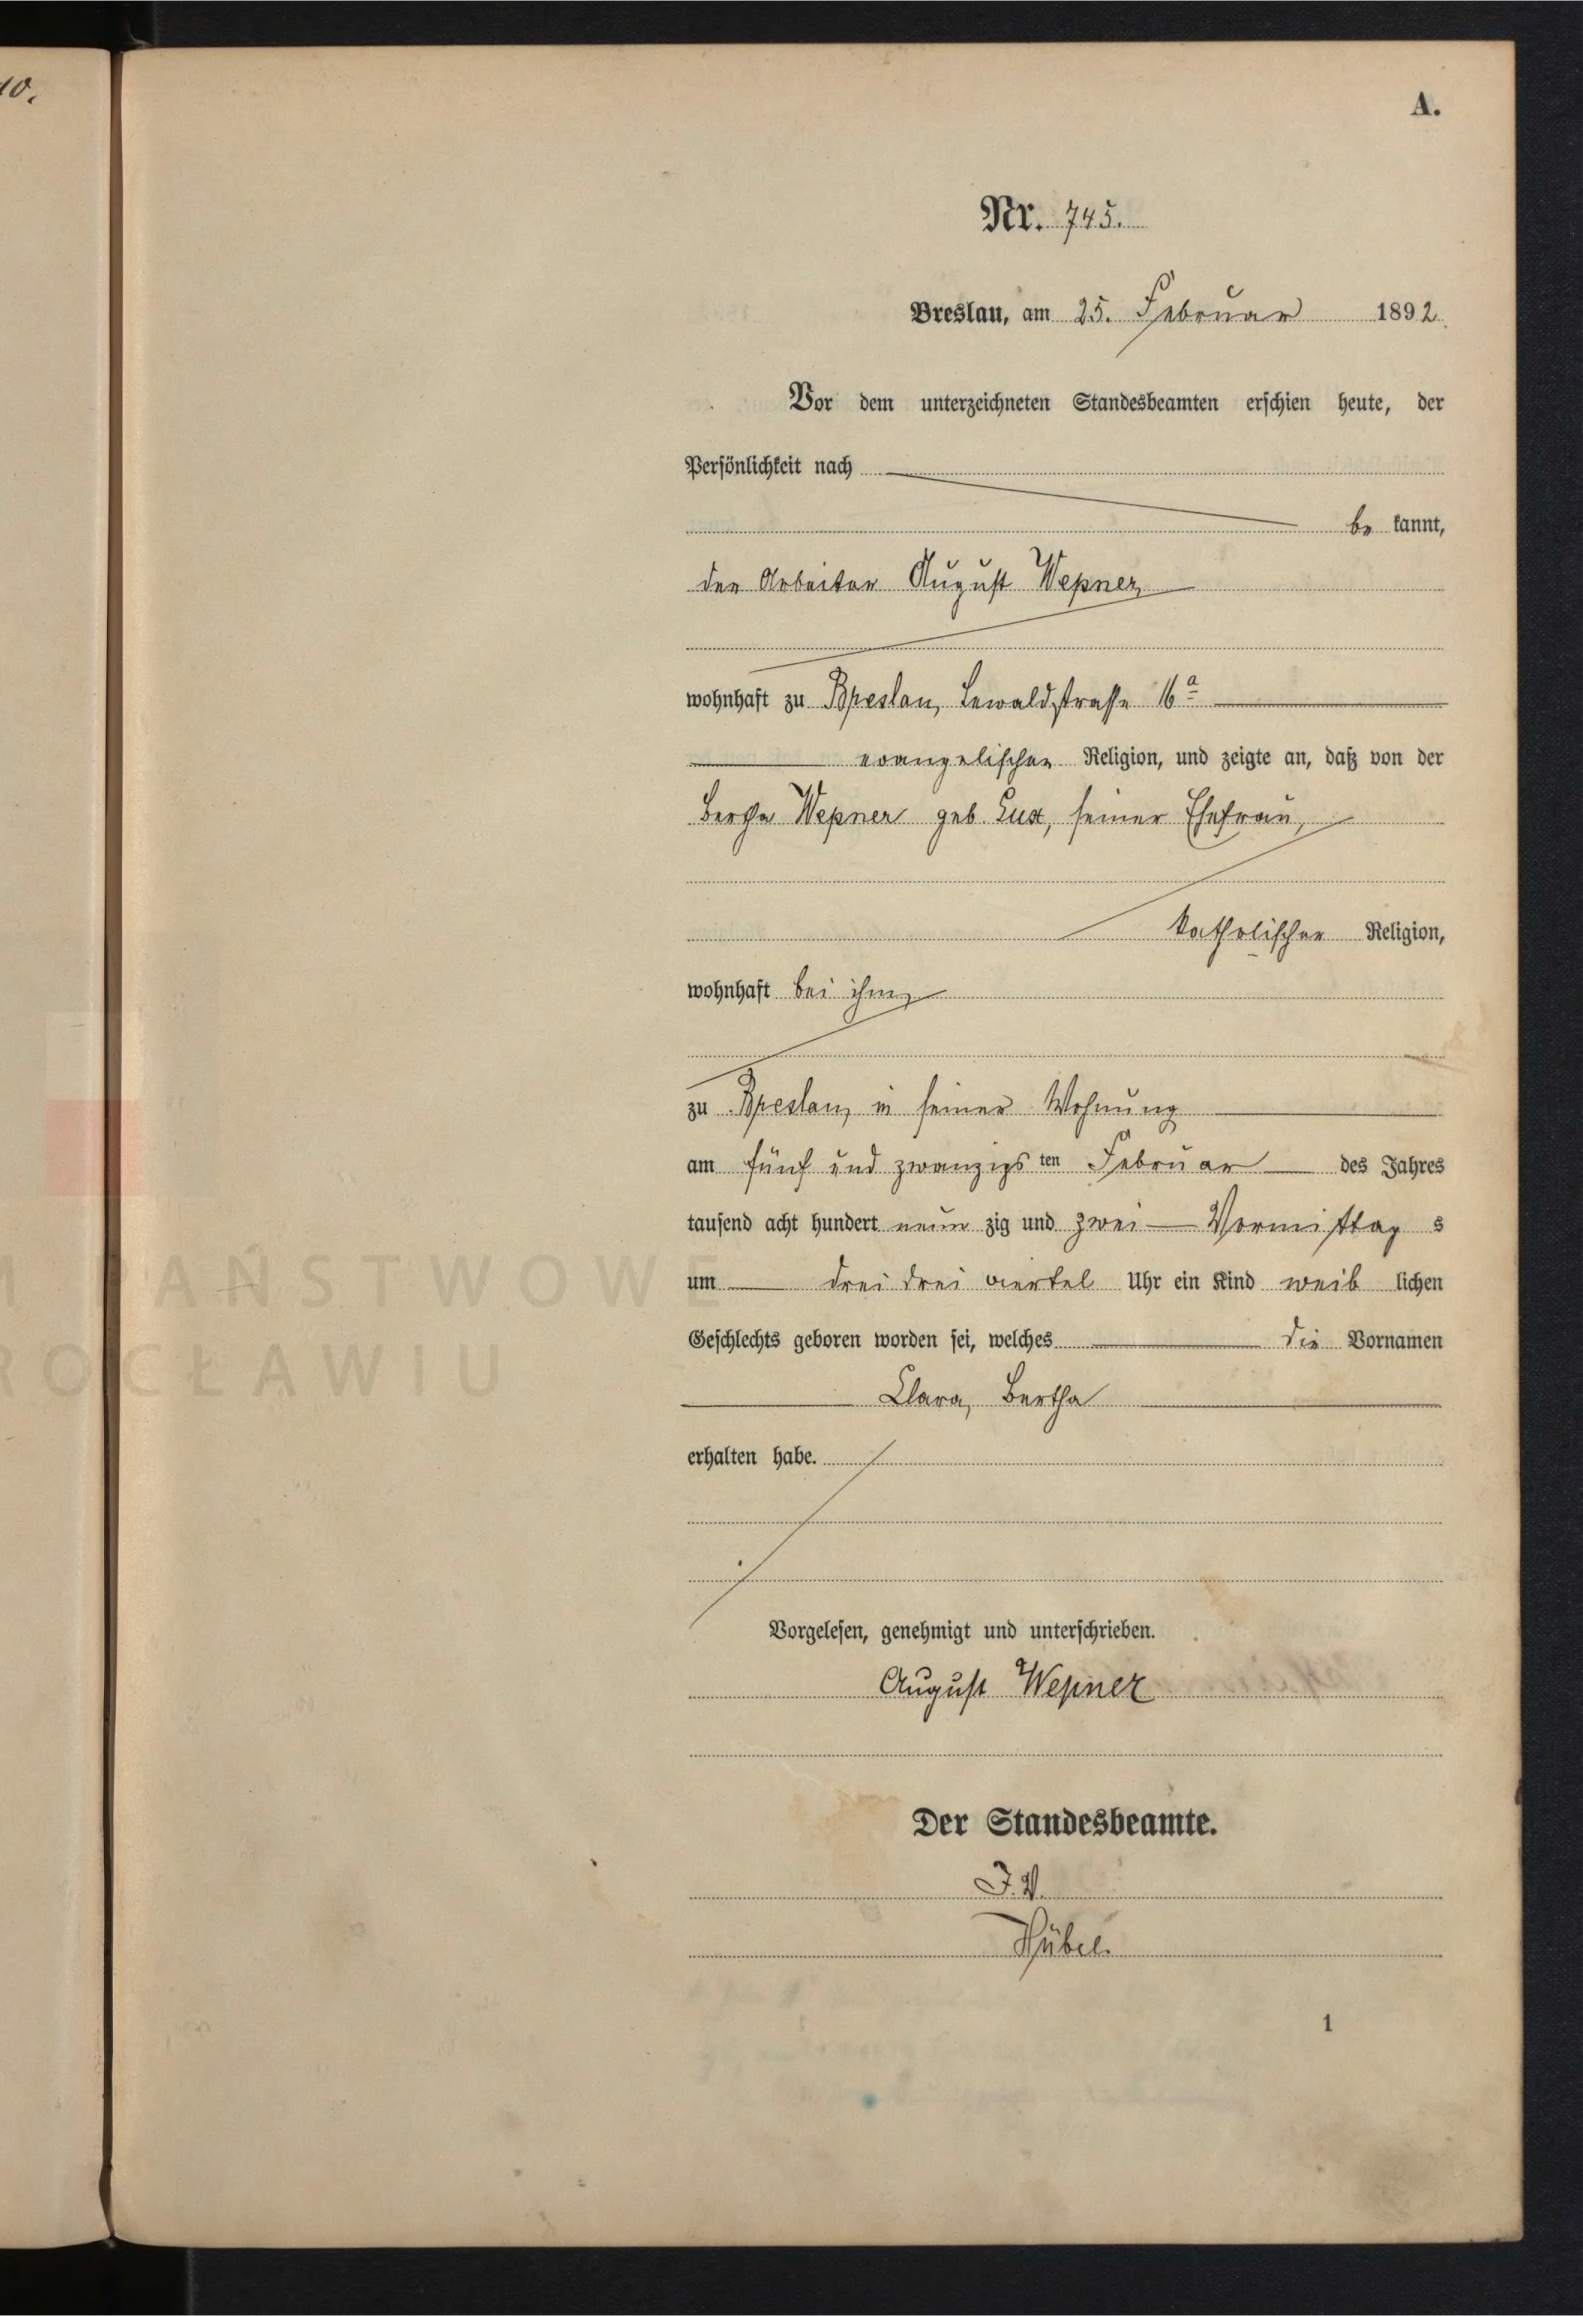 10.
A.
Nr. 745.
Breslau, am 25. Februar 1892.
Vor dem unterzeichneten Standesbeamten erschien heute, der
Persönlichkeit nach
be kannt,
der Arbeiter August Wepner,
wohnhaft zu Breslau, Lewaldstrasse 16a
evangelischer Religion, und zeigte an, daß von der
Bertha Wepner geb. Lux, seiner Ehefrau,
katholischer Religion,
wohnhaft bei ihm,
zu Breslau, in seiner Wohnung
am fünf und zwanzigs ten Februar des Jahres
tausend acht hundert neun zig und zwei Vormittag s
um drei drei viertel Uhr ein Kind weib lichen
Geschlechts geboren worden sei, welches die Vornamen
Clara, Bertha
erhalten habe.
Vorgelesen, genehmigt und unterschrieben.
August Wepner
Der Standesbeamte.
J.V.
Hübel.
1
M PAŃSTWOWE
ROCŁAWIU